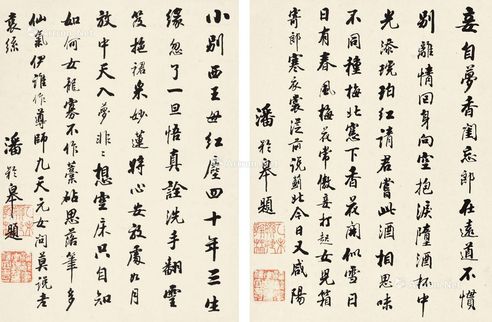 妾自夢香閨忘郎在遠道不慣
別離情回身向空抱淚墮酒杯中
光添琥珀紅請君嘗此酒相思味
不同種梅北窗下香花開似雪日
日有春風梅花常傲妾打起女兒箱
寄郎寒衣裳從前說薊北今日又咸陽
潘齡皋題
小別西王母紅塵四十年三生
緣忽了一旦悟真詮洗手翻雲
笈拖裙采妙蓮將心安放處明月
放中天入夢非非想空床只自知
如何女龍寡不作藁砧思落筆多
仙氣伊誰作尊師九天元女問莫說老
袁絲
潘齡皋題